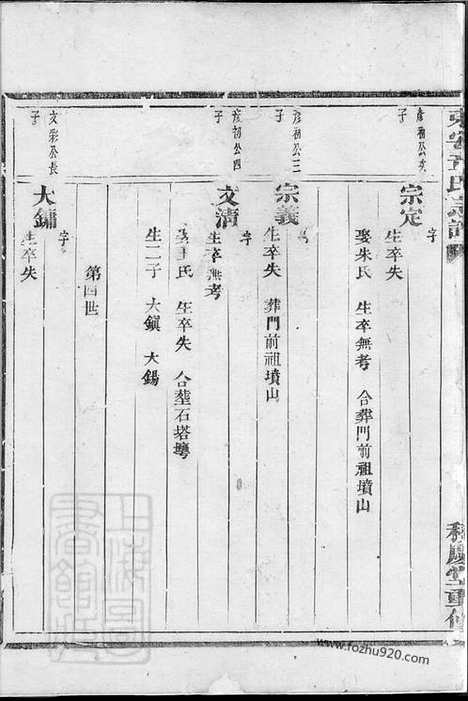 彥初公次子
宗定
字
生卒失
娶朱氏 生卒無考 合葬門前祖墳山
彥初公三子
宗義
生卒失 葬門前祖墳山
彥初公四子
文漬
字
生卒無考
氏 生卒失 合塟石塔塆
生二子 大鎭 大錫
第四世
文彩公長子
大鏽
字
生卒失
上海圖書館藏
www.fozhu920.com